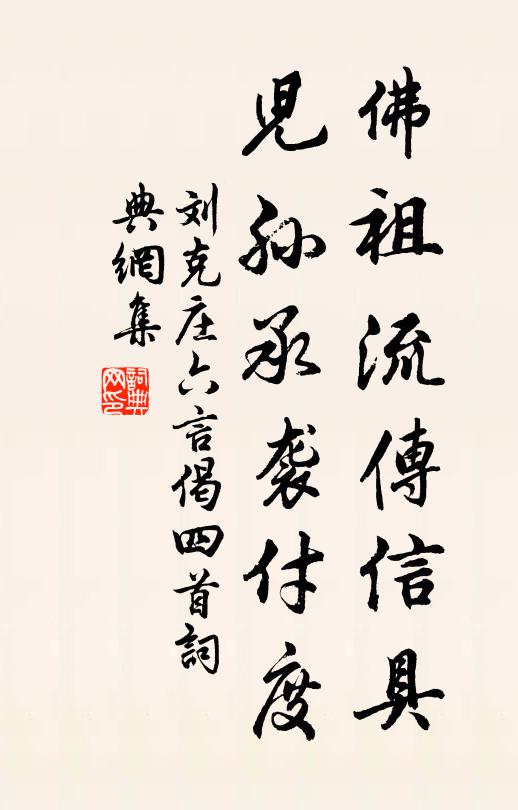 佛祖流傳信具
兒孫承襲付度
刘克庄六言偈四首詞
典網集
詞典網印